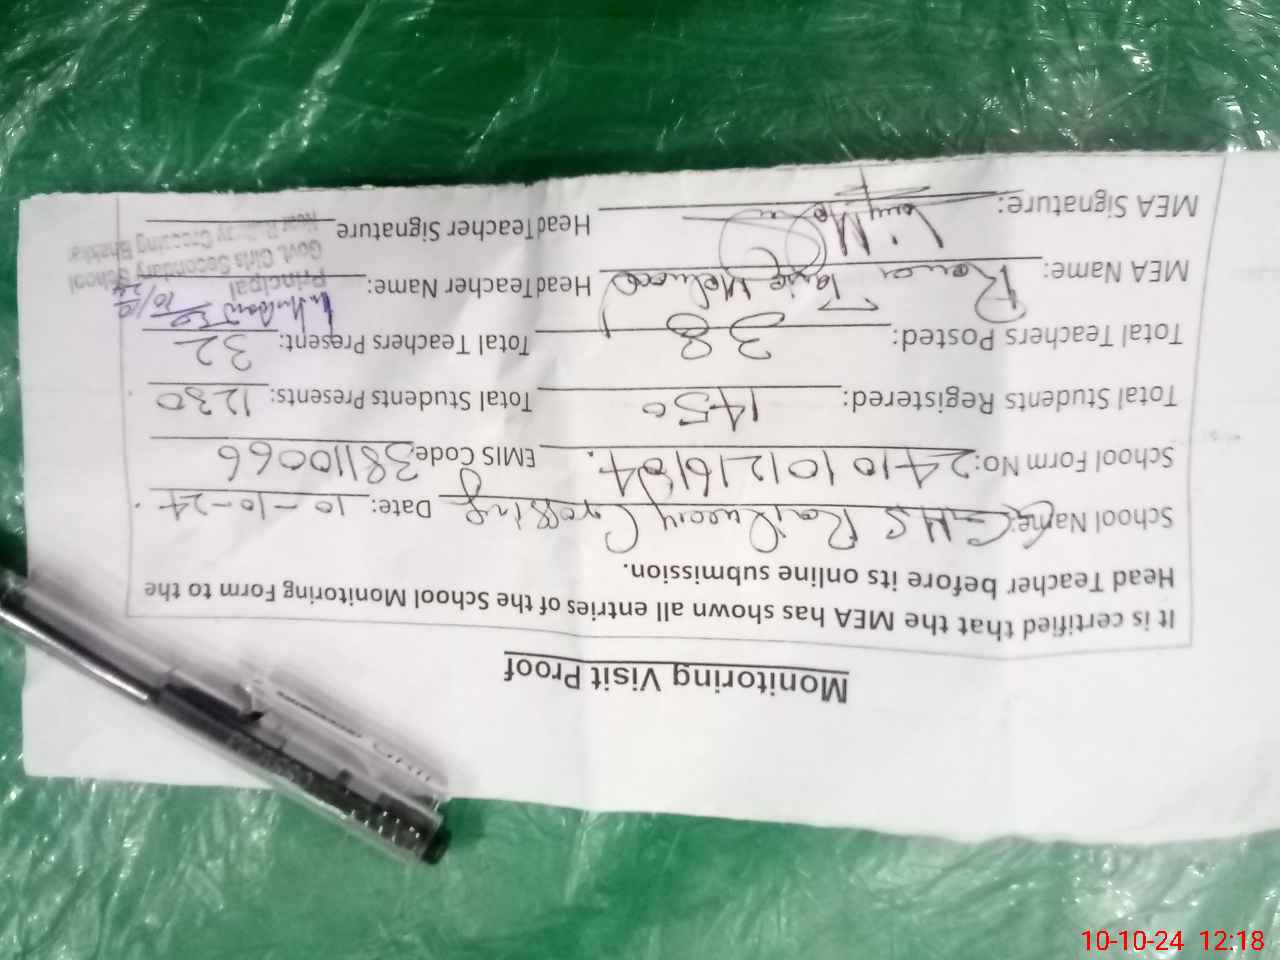 Monitoring Visit Proof
It is certified that the MEA has shown all entries of the School Monitoring Form to the
Head Teacher before its online submission.
School Name: GGHS Railway Crossing Date: 10-10-24
School Form No: 2410101216184. EMIS Code: 38110066
Total Students Registered: 1450 Total Students Presents: 1230
Total Teachers Posted: 38 Total Teachers Present: 32
MEA Name: Tariq Mehmood HeadTeacher Name:
Principal
Govt. Girls Secondary School
Near Railway Crossing Bhakkar
MEA Signature: HeadTeacher Signature
10-10-24 12:18